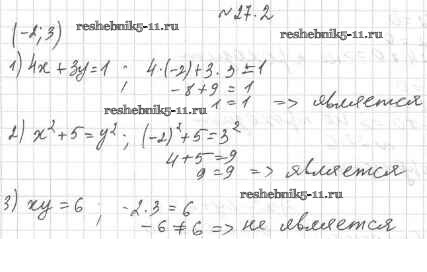 №27.2
(-2; 3) reshebnik5-11.ru reshebnik5-11.ru
1) 4x + 3y = 1 ; 4·(-2)+3·3 = 1
-8+9 = 1
1 = 1 => является
reshebnik5-11.ru
2) x²+5 = y² ; (-2)²+5 = 3²
4+5 = 9
9 = 9 => является
reshebnik5-11.ru
3) xy = 6 ; -2·3 = 6
-6 ≠ 6 => не является